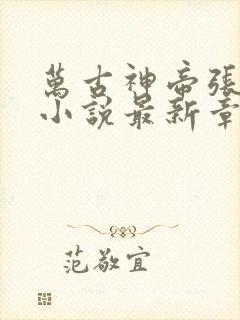 萬古神帝張
小說最新章
范敬宜